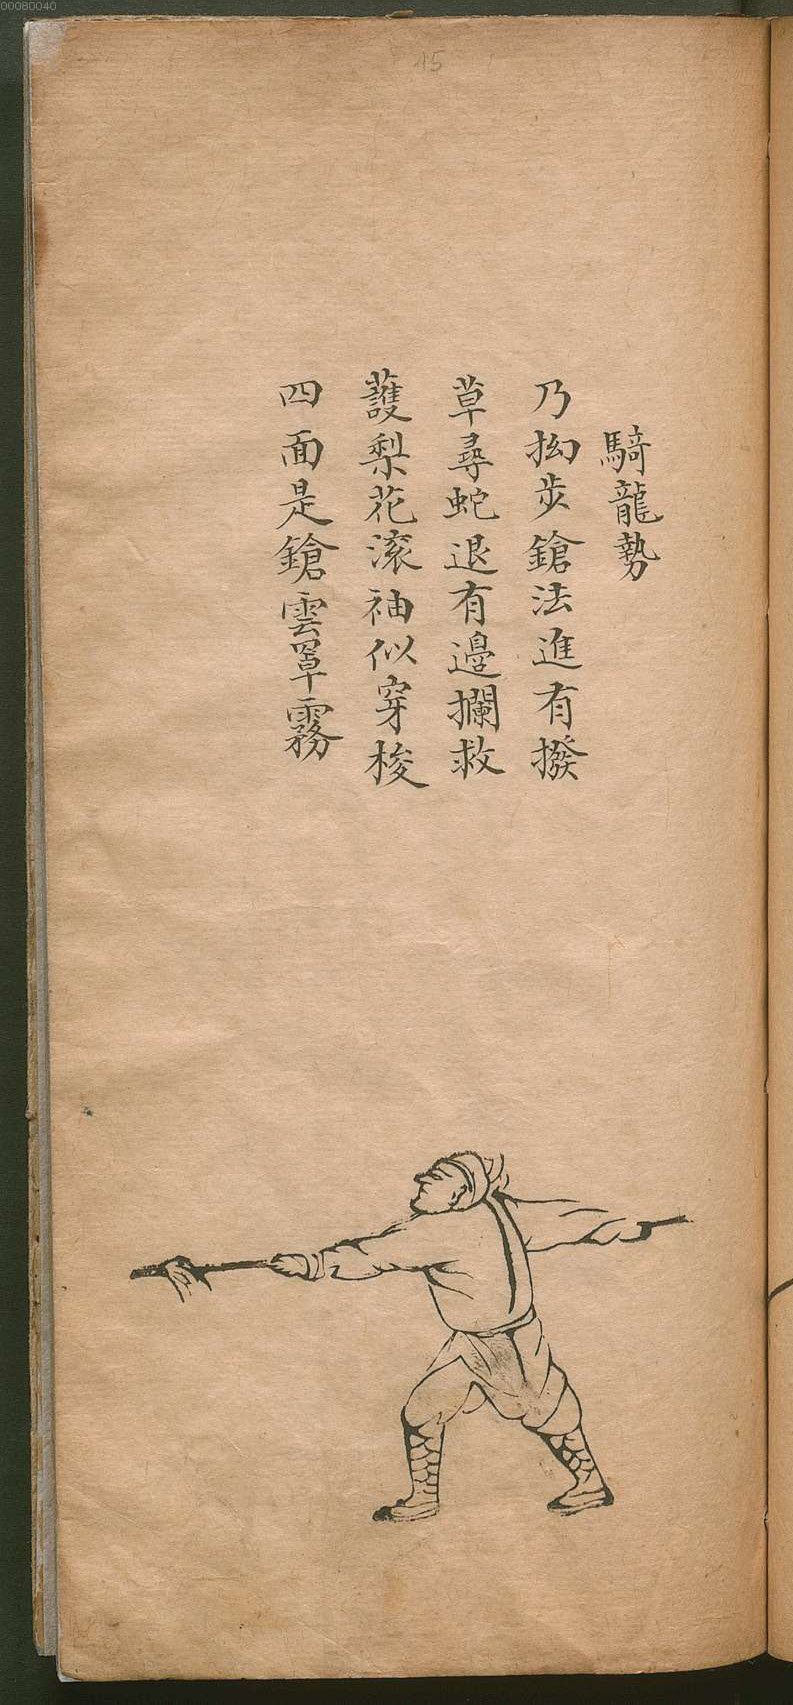 騎龍勢
乃拗步鎗法進有撥
草尋蛇退有邊攔救
護梨花滚袖似穿梭
四面是鎗雲罩霧
15
00080040